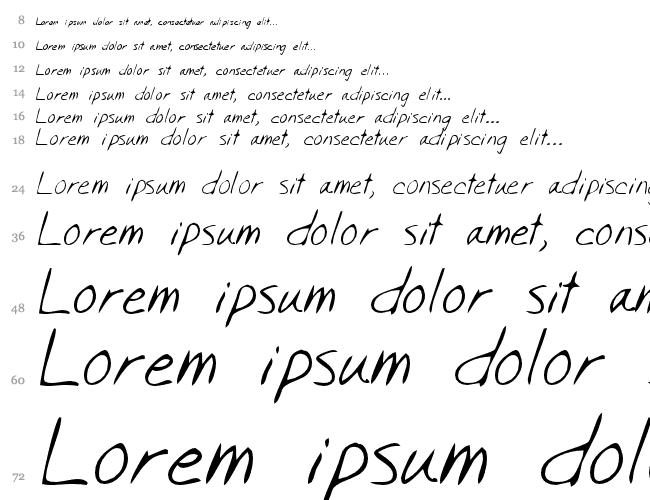 8 Lorem ipsum dolor sit amet, consectetuer adipiscing elit...
10 Lorem ipsum dolor sit amet, consectetuer adipiscing elit...
12 Lorem ipsum dolor sit amet, consectetuer adipiscing elit...
14 Lorem ipsum dolor sit amet, consectetuer adipiscing elit...
16 Lorem ipsum dolor sit amet, consectetuer adipiscing elit...
18 Lorem ipsum dolor sit amet, consectetuer adipiscing elit...
24 Lorem ipsum dolor sit amet, consectetuer adipiscing
36 Lorem ipsum dolor sit amet, cons
48 Lorem ipsum dolor sit am
60 Lorem ipsum dolor
72 Lorem ipsum dol